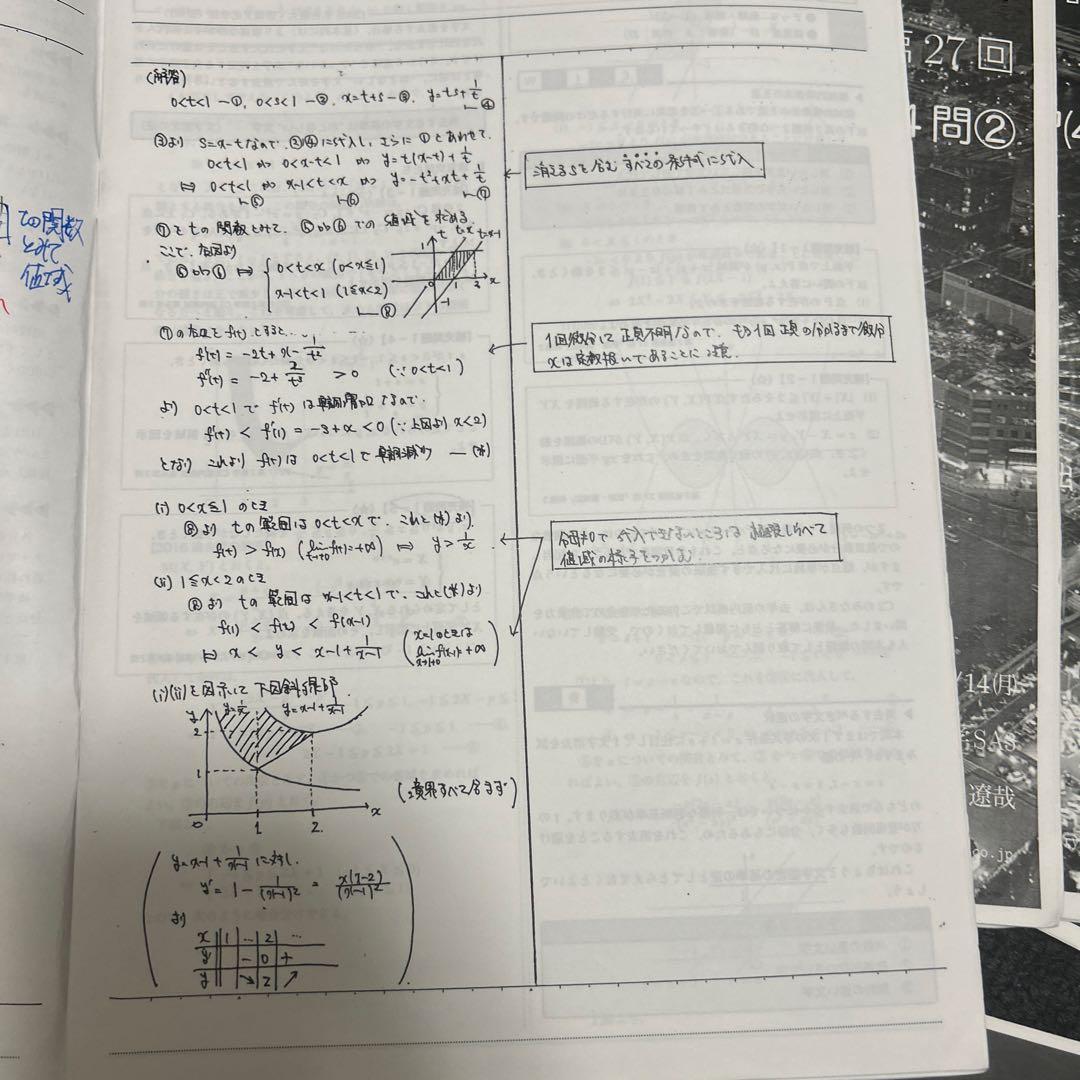 (解答)
0<t<1 –①, 0<s<1 –②, x=t+s –③, y=ts+1/t –④
③より s=x-tなので、②④に代入し、さらに①とあわせて、
0<t<1 かつ 0<x-t<1 かつ y=t(x-t)+1/t
⇔ 0<t<1 かつ x-1<t<x かつ y=-t²+xt+1/t
⑤ ⑥ ⑦
消えるsを含むすべての条件式に代入
⑦をtの関数とみて、⑤かつ⑥での値域を求める。
ここで、右図より
⑤かつ⑥ ⇔ { 0<t<x (0<x≦1)
x-1<t<1 (1≦x<2)
⑧
t t=x t=x-1
1 0 1 2 x
-1
⑦の右辺をf(t)とすると、
f'(t) = -2t+x-1/t²
f''(t) = -2+2/t³ >0 (∵0<t<1)
1回微分して正負不明なので、もう1回正負の分かるまで微分
xは定数扱いであることに注意.
より 0<t<1で f'(t)は単調増加なので、
f'(t) < f'(1) = -3+x <0 (∵上図より x<2)
となり これより f(t)は0<t<1で単調減少 —(*)
(i) 0<x≦1 のとき
⑧より tの範囲は0<t<xで、これと(*)より、
f(t) > f(x) (lim t→+0 f(t)=+∞) ⇔ y>1/x
合図≠0で 代入できないところは 極限しらべて
値域の様子をつかむ
(ii) 1≦x<2のとき
⑧より tの範囲は x-1<t<1で、これと(*)より
f(1) < f(t) < f(x-1)
⇔ x < y < x-1+1/(x-1)
(i)(ii)を図示して 下図斜線部.
y y=1/x y=x-1+1/(x-1)
2
1
0 1 2 x
(境界すべて含まず)
y=x-1+1/(x-1) に対し.
y' = 1-1/(x-1)² = x(x-2)/(x-1)²
より
x 1 … 2 …
y' - 0 +
y ↘ 2 ↗
の関数
とみて
値域
第27回
4問②
/14(月)
SAS
遼哉
co.jp